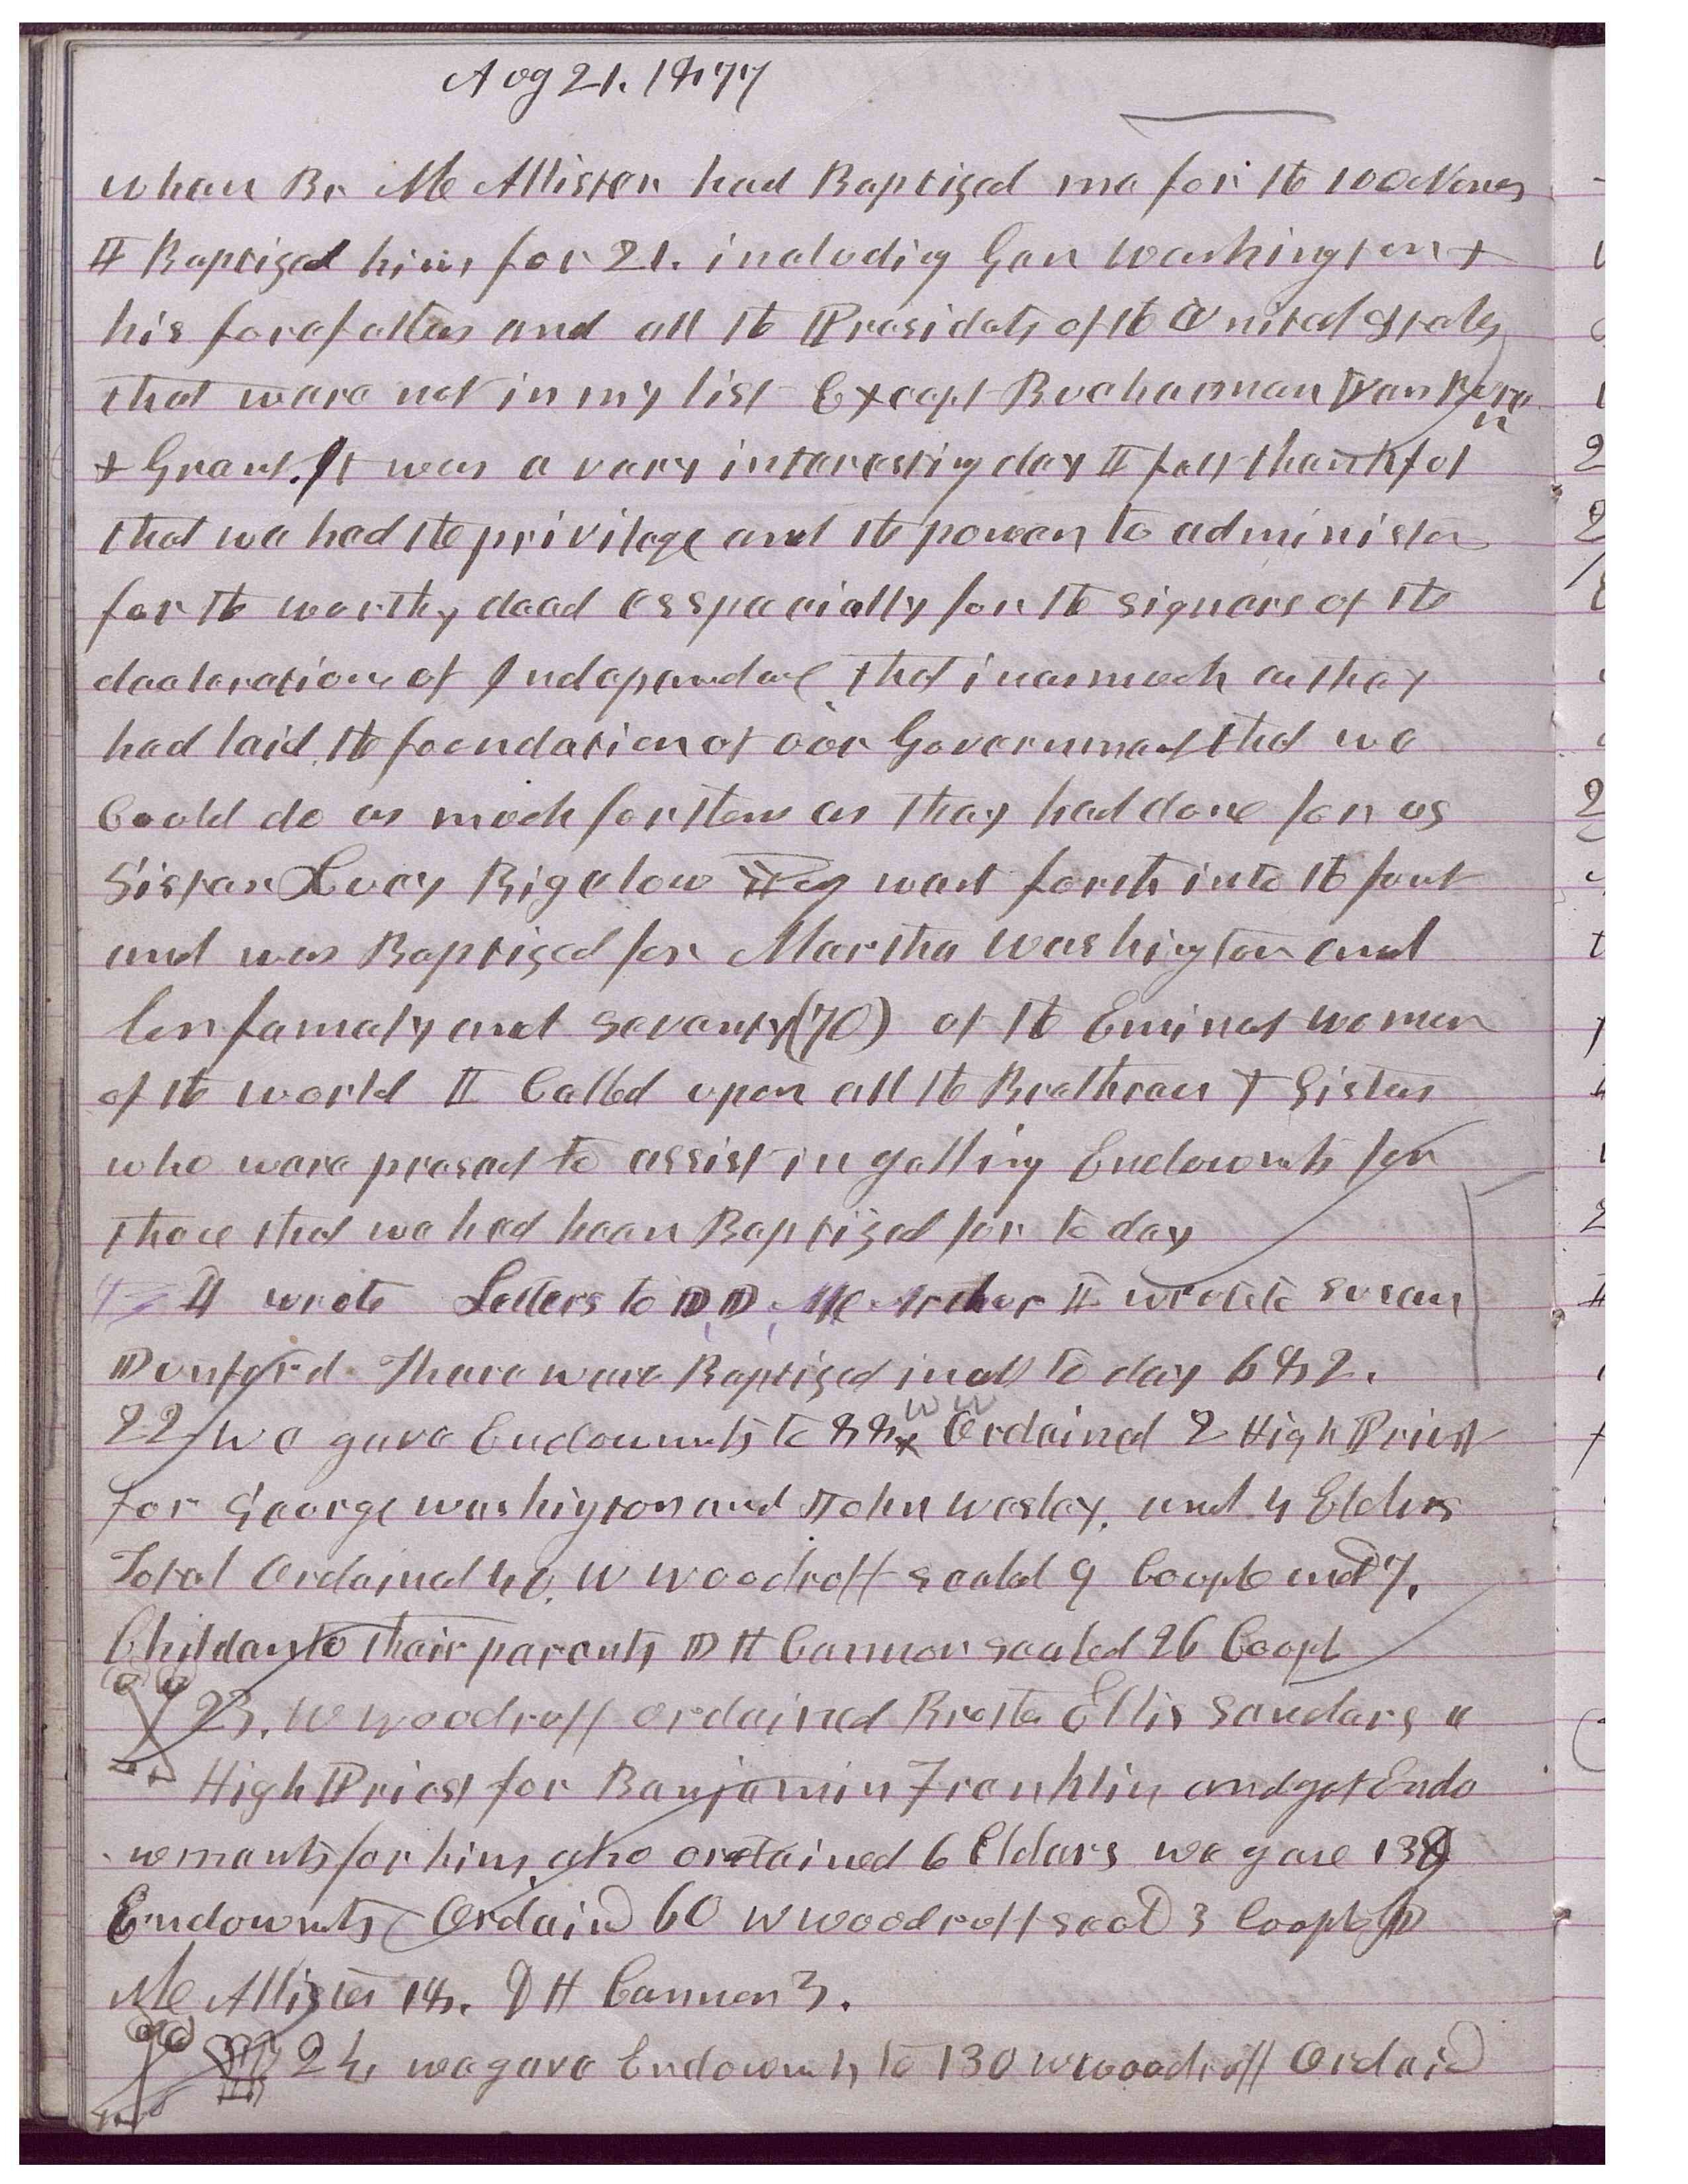 Aug 21. 1877
when Br McAllister had Baptized me for the 100 Names
I Baptized him for 21. including Gen Washington &
his forefathers and all the Presidets of the United States
that were not in my list Except Buchannan Van Buren
& Grant. It was a very interesting day I felt thankful
that we had the privilege and the power to administer
for the worthy dead esspecially for the signers of the
decleration of Independance that inasmuch as they
had laid the foundation of our Government that we
Could do as much for them as they had done for us
Sister Lucy Bigelow went forth into the font
and was Baptized for Martha Washington and
her famaly and seventy (70) of the Eminet women
of the world I Called upon all the Brethren & Sisters
who were preset to assist in getting Endowmts for
those that we had been Baptized for to day
I wrote Letters to D. D. McArthur I wrote to Susan
Dunford. There were Baptized in all to day 682.
22 We gave Endowmts to 88 WW Ordained 2 High Priest
for George Washigton and John Wesley. and 4 Elders
Total Ordained 40. W Woodruff sealed 9 Couple and 7.
Childen to their parents D H Cannon sealed 26 Coupl
23. W Woodruff ordained Brother Ellis Sanders a
High Priest for Benjamin Franklin and got Endo
wments for him, also ordained 6 Elders we gave 138
Endowmts Ordaind 60 W Woodruff seald 3 Coupls
McAllister 14. D H Cannon 3.
24 we gave Endowmts to 130 W Woodruff Ordaid